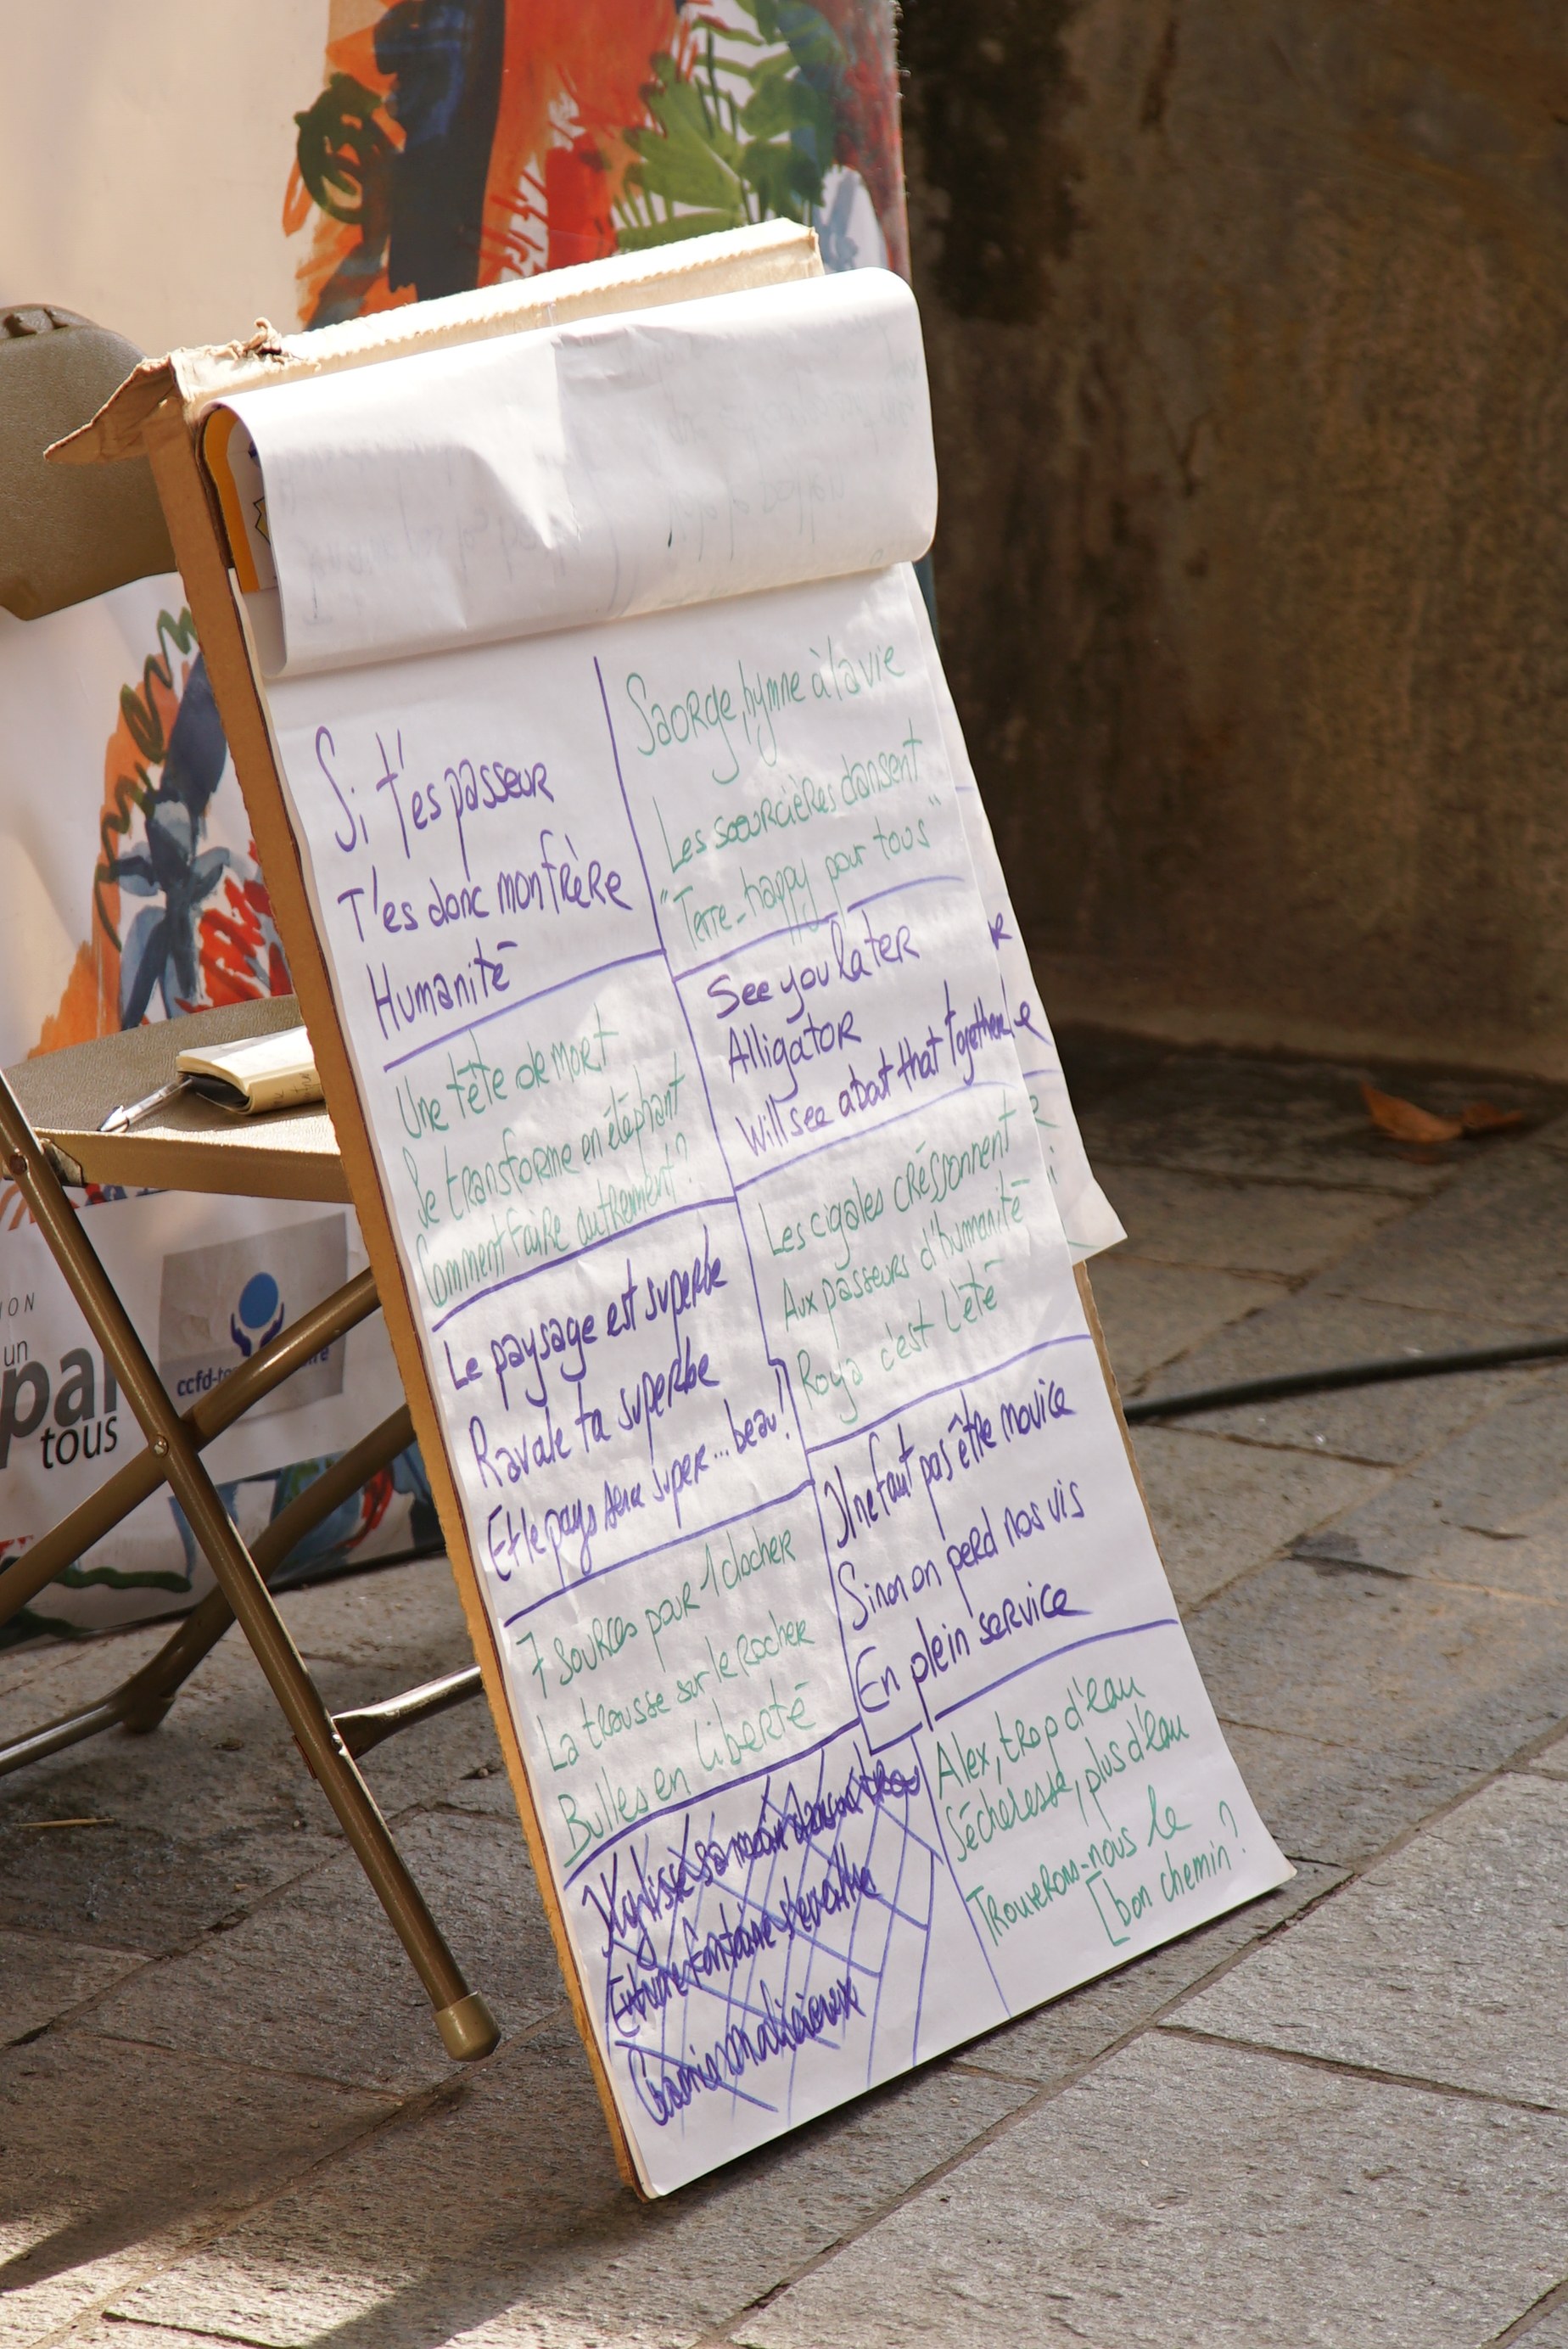 Si t'es passeur
T'es donc mon frère
Humanité
Une tête de mort
Se transforme en éléphant
Comment faire autrement?
Le paysage est superbe
Ravale ta superbe
Et le pays sera super... beau!
7 sources pour 1 clocher
La trousse sur le rocher
Bulles en liberté
Il glisse sa main dans un trou
Et une fontaine s'éveille
Gamins malicieux
Saorge, hymne à la vie
Les sœurcières dansent
"Terre-happy pour tous"
See you later
Alligator
Will see about that together
Les cigales créssonnent
Aux passeurs d'humanité
Roya c'est l'été
Il ne faut pas être novice
Sinon on perd nos vis
En plein service
Alex, trop d'eau
Sécheresse, plus d'eau
Trouverons-nous le
[bon chemin?
R
e
ION
un
pal
tous